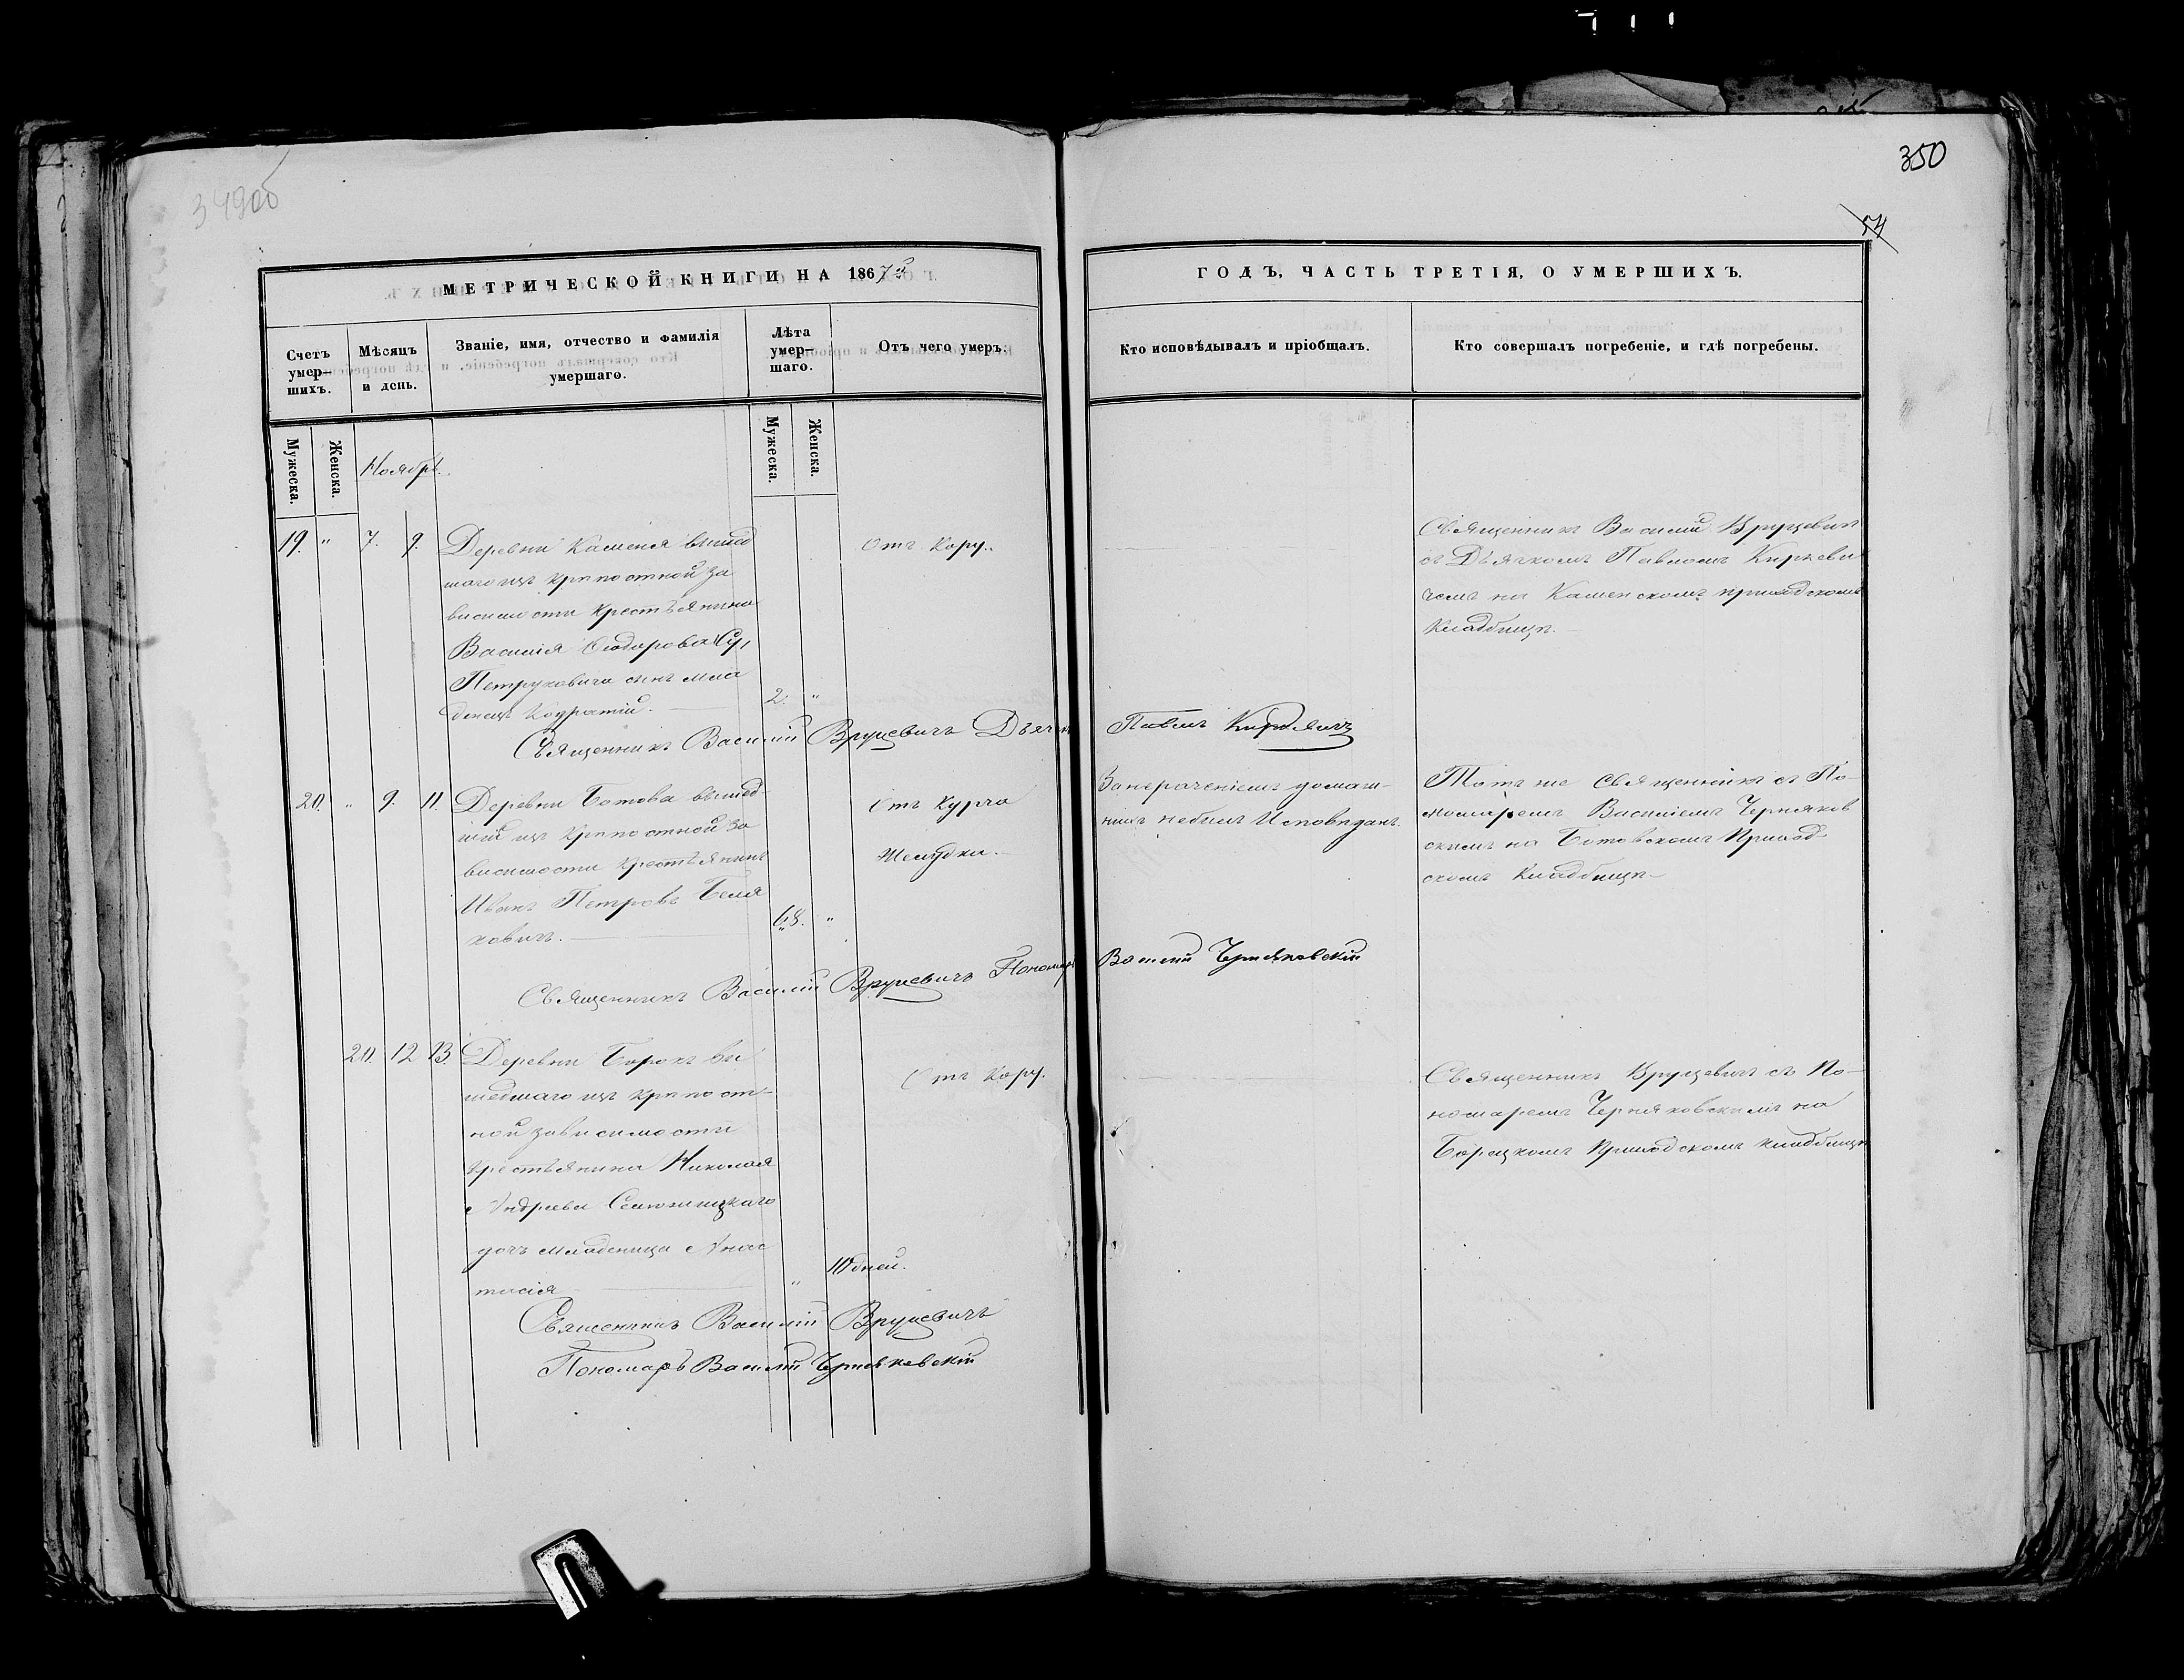 350
349об
54
МЕТРИЧЕСКОЙ КНИГИ НА 1867й
ГОДЪ, ЧАСТЬ ТРЕТІЯ, О УМЕРШИХЪ.
Счетъ умер–шихъ.
Мѣсяцъ и день.
Званіе, имя, отчество и фамилія умершаго.
Лѣта умер–шаго.
Отъ чего умеръ.
Кто исповѣдывалъ и пріобщалъ.
Кто совершалъ погребеніе, и гдѣ погребены.
Мужеска.
Женска.
Ноябрь.
Мужеска.
Женска.
19. " 7. 9.
Деревни Каменя вышед
шаго изъ крѣпостной за
висимости крестьянина
Василія Ѳеодорова
Петруковича сынъ мла
денецъ Кодратій.
2. "
Отъ кору.
Священникъ Василій Вруцевичъ
съ Дьячкомъ Павломъ
на Каменскомъ приходскомъ
кладбищѣ.
Священникъ Василій Вруцевичъ Дьячекъ Павелъ
20. " 9. 11.
Деревни Ботова вышед
шій изъ крѣпостной за
висимости крестьянинъ
Иванъ Петровъ Беля
ковичъ.
68. "
Отъ курча
желудка.
домаш–
нимъ небылъ исповѣданъ.
Тотъ же священникъ съ По–
номаремъ Василіемъ Черняков
скимъ на Ботовскомъ приход
скомъ кладбищѣ
Священникъ Василій Вруцевичъ Пономарь Василій Черняковскій
20. 12 13.
Деревни Борокъ вы
шедшаго изъ крѣпост–
ной зависимости
крестьянина Николая
Андреева
дочь младеница Анас
тасія
" 10 дней.
Отъ кору.
Священникъ Вруцевичъ съ По–
номаремъ Черняковскимъ на
Борецкомъ приходскомъ кладбищѣ
Священникъ Василій Вруцевичъ
Пономарь Василій Черняковскій